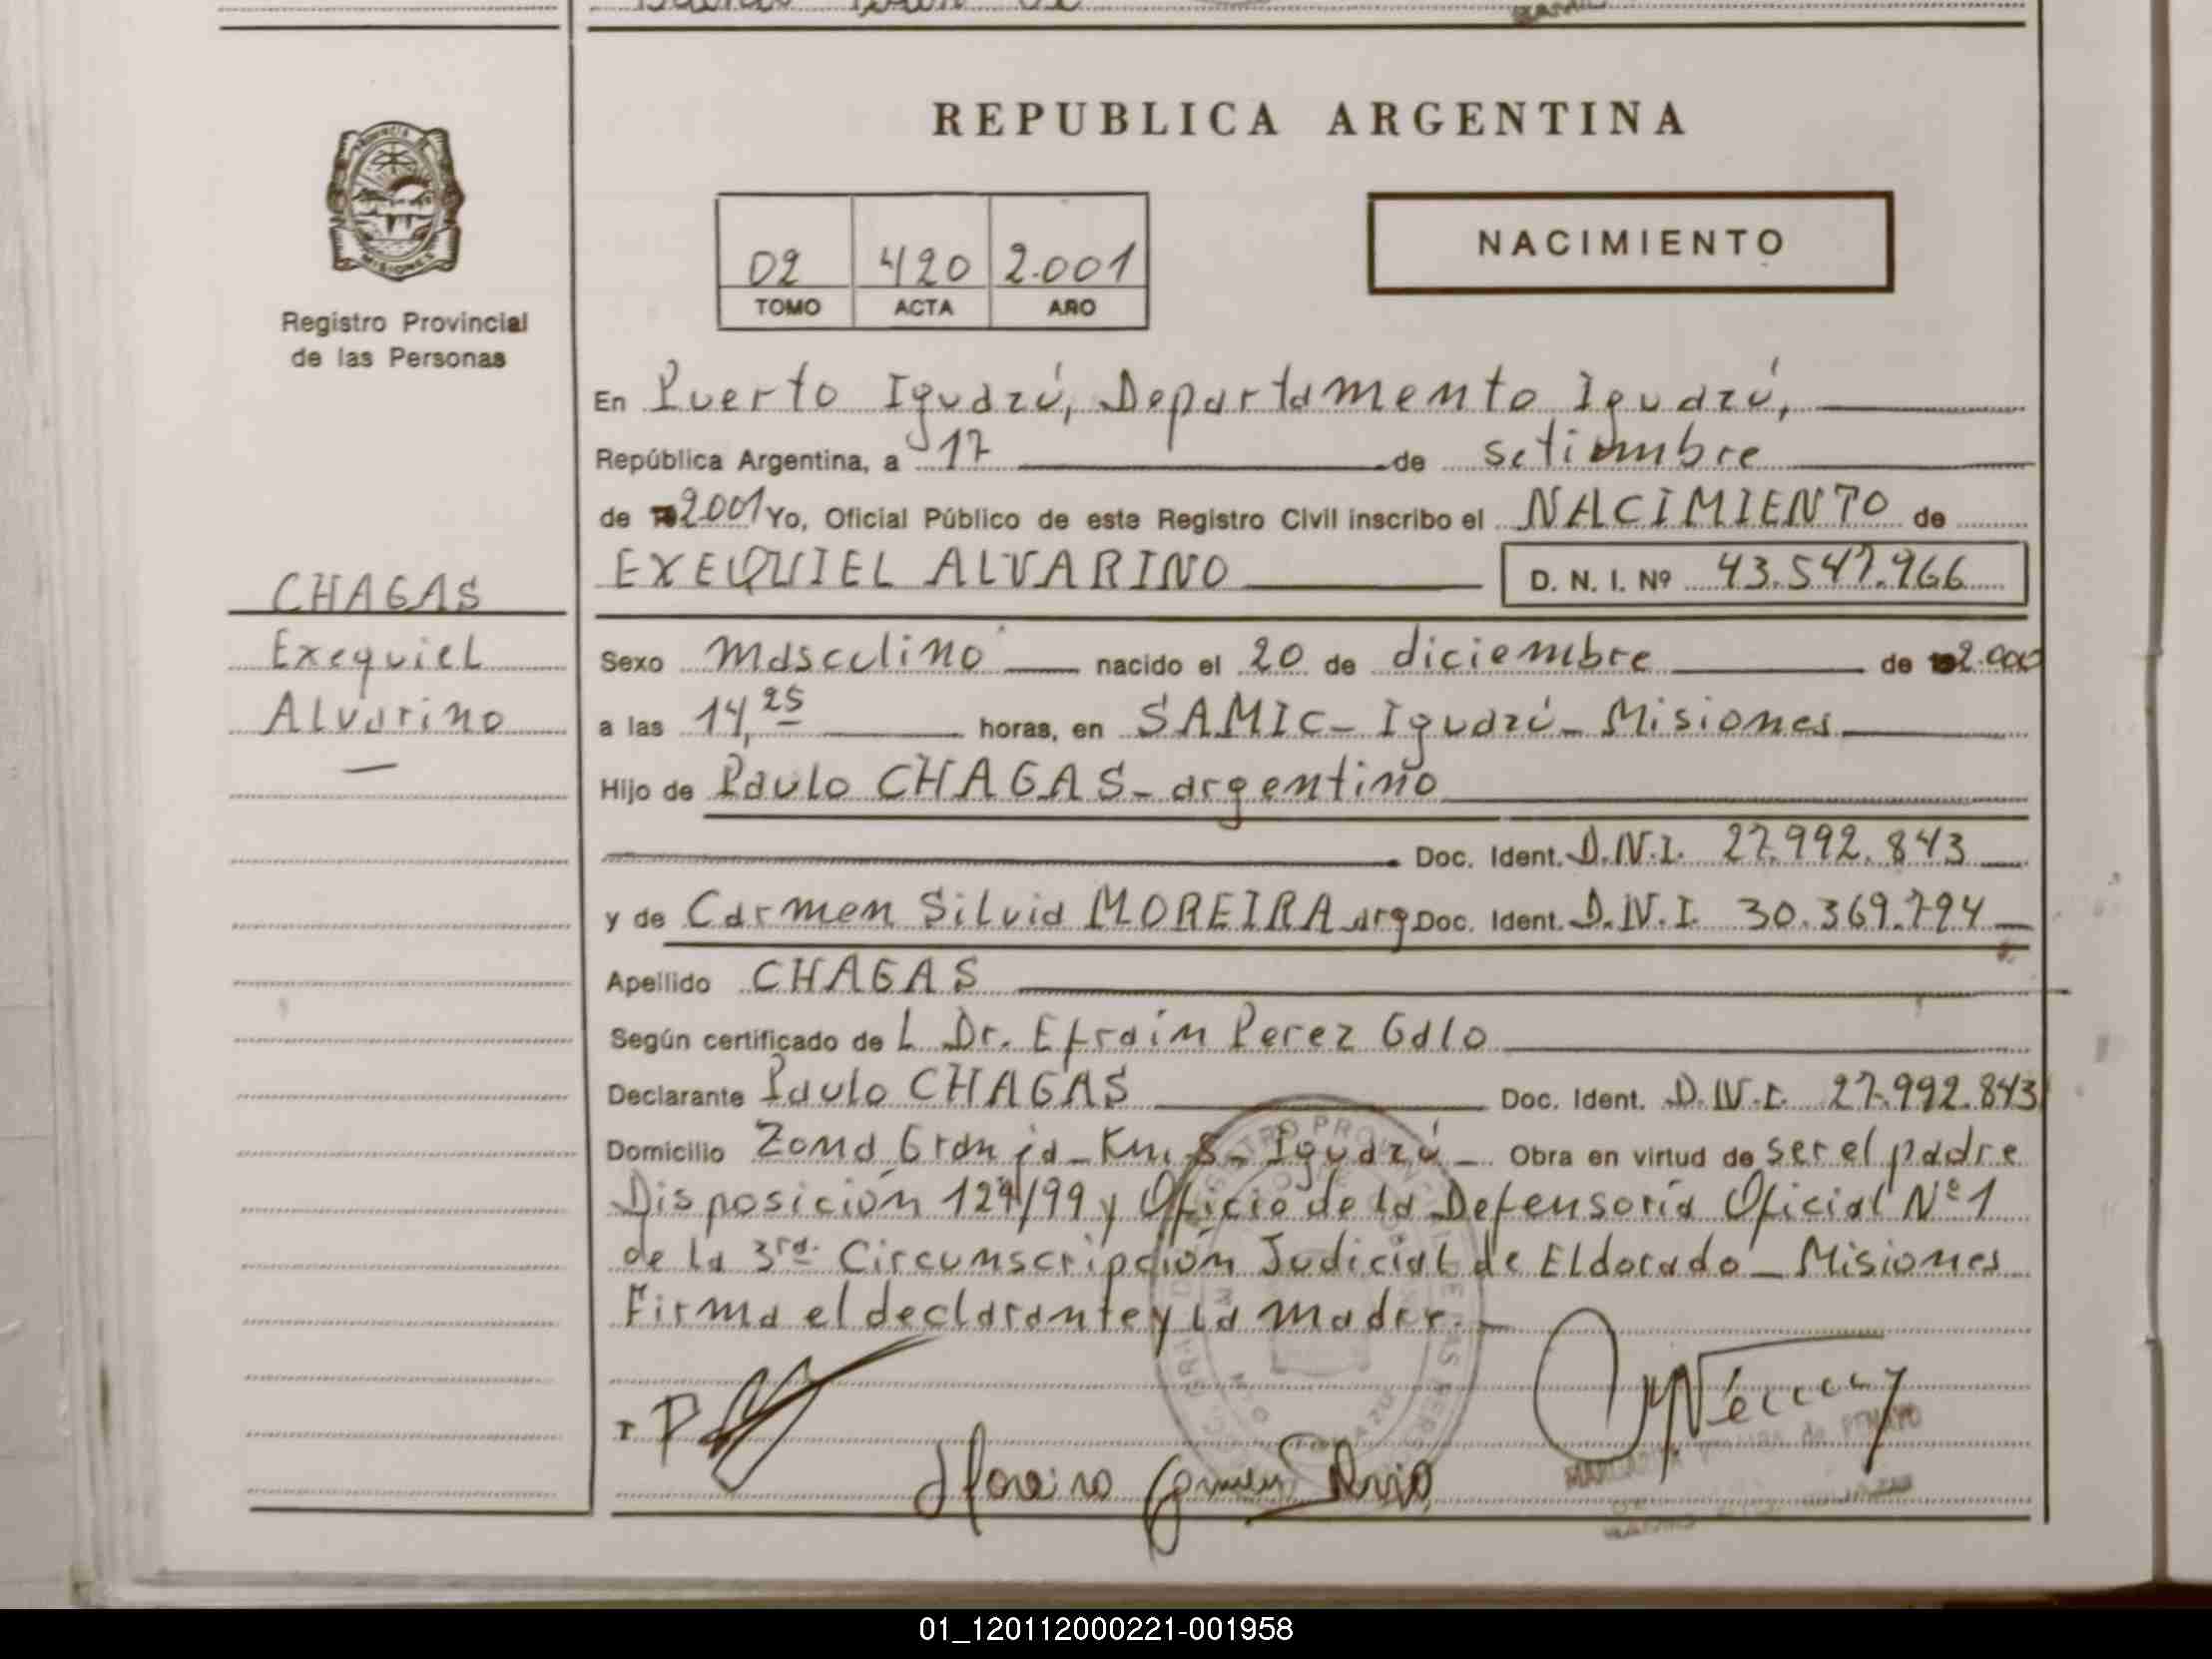 REPUBLICA ARGENTINA
PROVINCIA
MISIONES
Registro Provincial
de las Personas
02 420 2.001
TOMO ACTA AÑO
NACIMIENTO
En Puerto Iguazú, Departamento Iguazú,
República Argentina, a 17 de setiembre
de 2001 Yo, Oficial Público de este Registro Civil inscribo el NACIMIENTO de
EXEQUIEL ALVARINO D. N. I. Nº 43.547.966
CHAGAS
Exequiel
Alvarino
Sexo masculino nacido el 20 de diciembre de 2.000
a las 14,25 horas, en SAMIC - Iguazú - Misiones
Hijo de Paulo CHAGAS - argentino
Doc. Ident. D.N.I. 27.992.843
y de Carmen Silvia MOREIRA arg Doc. Ident. D.N.I. 30.369.794
Apellido CHAGAS
Según certificado de L Dr. Efraín Perez Galo
Declarante Paulo CHAGAS Doc. Ident. D.N.I. 27.992.843
Domicilio Zona Granja - Km. 8 - Iguazú - Obra en virtud de ser el padre
Disposición 124/99 y Oficio de la Defensoría Oficial Nº 1
de la 3ra. Circunscripción Judicial de Eldorado - Misiones
Firma el declarante y la mader. -
Moreira Carmen Silvia
01_120112000221-001958